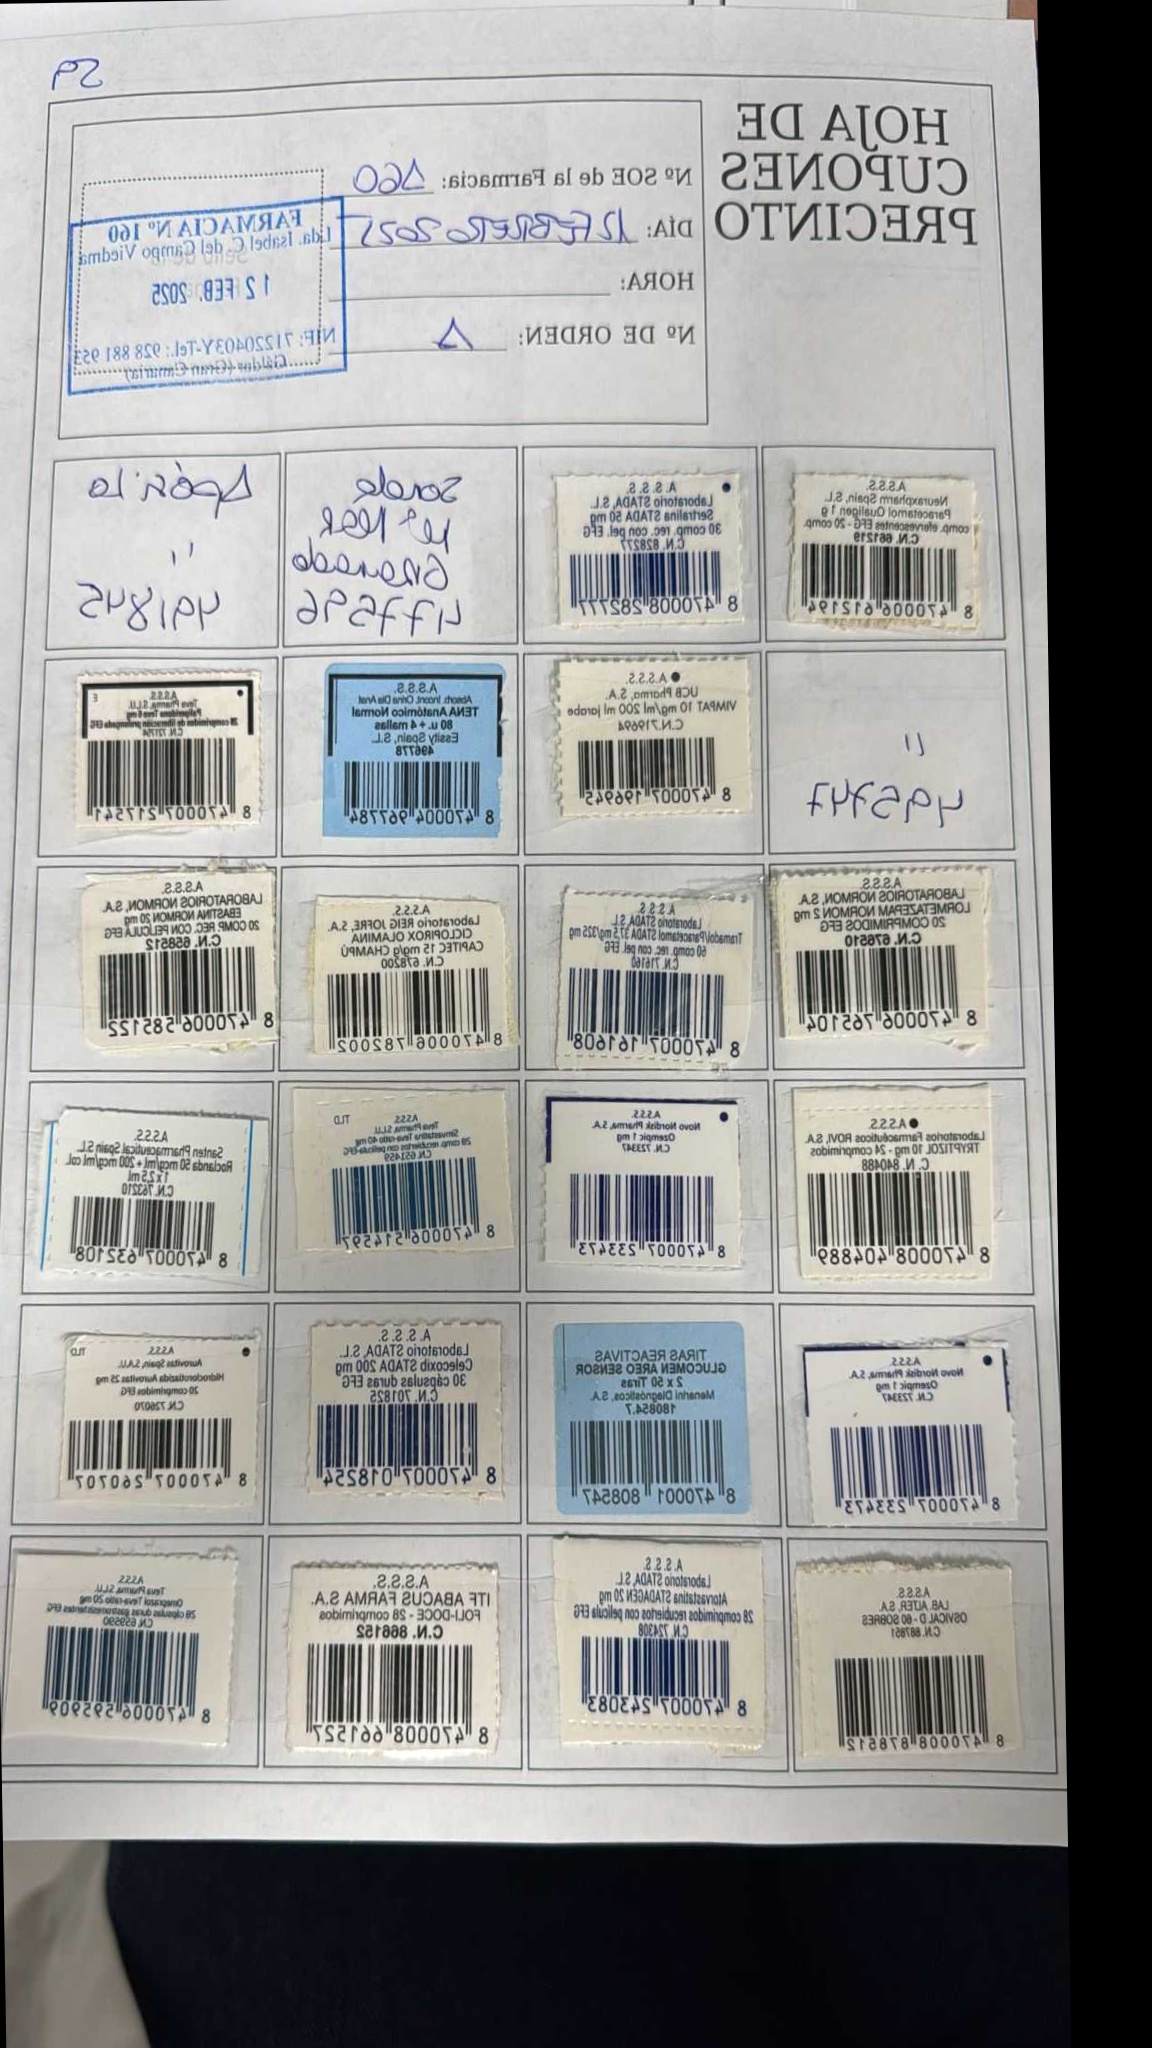 59
HOJA DE
CUPONES
PRECINTO
Nº SOE de la Farmacia: 160
DÍA: 12 FEBRERO 2025
HORA:
Nº DE ORDEN: 1
FARMACIA Nº 160
Lda. Isabel C. del Campo Viedma
Sello de la
12 FEB. 2025
NIF: 71220403Y-Tel.: 928 881 953
Gáldar (Gran Canaria)
A.S.S.S.
Neuraxpharm Spain, S.L.
Paracetamol Qualigen 1 g
comp. efervescentes EFG - 20 comp.
C.N. 661219
8 470006 612194
A.S.S.S.
Laboratorio STADA, S.L.
Sertralina STADA 50 mg
30 comp. rec. con pel. EFG
C.N. 828277
8 470008 282777
Granado
477596
Apósito
"
491845
"
495747
A.S.S.S.
UCB Pharma, S.A.
VIMPAT 10 mg/ml 200 ml jarabe
C.N.719694
8 470007 196945
A.S.S.S.
Absorb. Incont. Orina Día Anat
TENA Anatómico Normal
80 u. + 4 mallas
Essity Spain, S.L.
496778
8 470004 967784
A.S.S.S.
E
Teva Pharma, S.L.U.
Paliperidona Teva 6 mg
28 comprimidos de liberación prolongada EFG
C.N. 721754
8 470007 217541
A.S.S.S.
LABORATORIOS NORMON, S.A.
LORMETAZEPAM NORMON 2 mg
20 COMPRIMIDOS EFG
C.N. 676510
8 470006 765104
A.S.S.S.
Laboratorio STADA, S.L.
Tramadol/Paracetamol STADA 37,5 mg/325 mg
60 comp. rec. con pel. EFG
C.N. 716160
8 470007 161608
A.S.S.S.
Laboratorio REIG JOFRE, S.A.
CICLOPIROX OLAMINA
CAPITEC 15 mg/g CHAMPÚ
C.N. 678200
8 470006 782002
A.S.S.S.
LABORATORIOS NORMON, S.A.
EBASTINA NORMON 20 mg
20 COMP REC. CON PELICULA EFG
C.N. 658512
8 470006 585122
A.S.S.S.
Laboratorios Farmacéuticos ROVI, S.A.
TRYPTIZOL 10 mg - 24 comprimidos
C. N. 840488
8 470008 404889
A.S.S.S.
Novo Nordisk Pharma, S.A.
Ozempic 1 mg
C.N. 723347
8 470007 233473
A.S.S.S.
TLD
Teva Pharma, S.L.U.
Simvastatina Teva-ratio 40 mg
28 comp. recubiertos con película-EFG
C.N. 651459
8 470006 514597
A.S.S.S.
Santen Pharmaceutical Spain S.L.
Roclanda 50 mcg/ml + 200 mcg/ml col.
1 x 2,5 ml
C.N. 763210
8 470007 632108
A.S.S.S.
Novo Nordisk Pharma, S.A.
Ozempic 1 mg
C.N. 723347
8 470007 233473
TIRAS REACTIVAS
GLUCOMEN AREO SENSOR
2 x 50 Tiras
Menarini Diagnósticos, S.A.
180854.7
8 470001 808547
A.S.S.S.
Laboratorio STADA, S.L.
Celecoxib STADA 200 mg
30 cápsulas duras EFG
C.N. 701825
8 470007 018254
A.S.S.S.
TLD
Aurovitas Spain, S.A.U.
Hidroclorotiazida Aurovitas 25 mg
20 comprimidos EFG
C.N. 726070
8 470007 260707
A.S.S.S.
LAB. ALTER, S.A.
OSVICAL D - 60 SOBRES
C.N. 887851
8 470008 878512
A.S.S.S.
Laboratorio STADA, S.L.
Atorvastatina STADAGEN 20 mg
28 comprimidos recubiertos con película EFG
C.N. 724308
8 470007 243083
A.S.S.S.
ITF ABACUS FARMA S.A.
FOLI-DOCE - 28 comprimidos
C.N. 866152
8 470008 661527
A.S.S.S.
Teva Pharma, S.L.U.
Omeprazol Teva-ratio 20 mg
28 cápsulas duras gastrorresistentes EFG
C.N. 659590
8 470006 595909